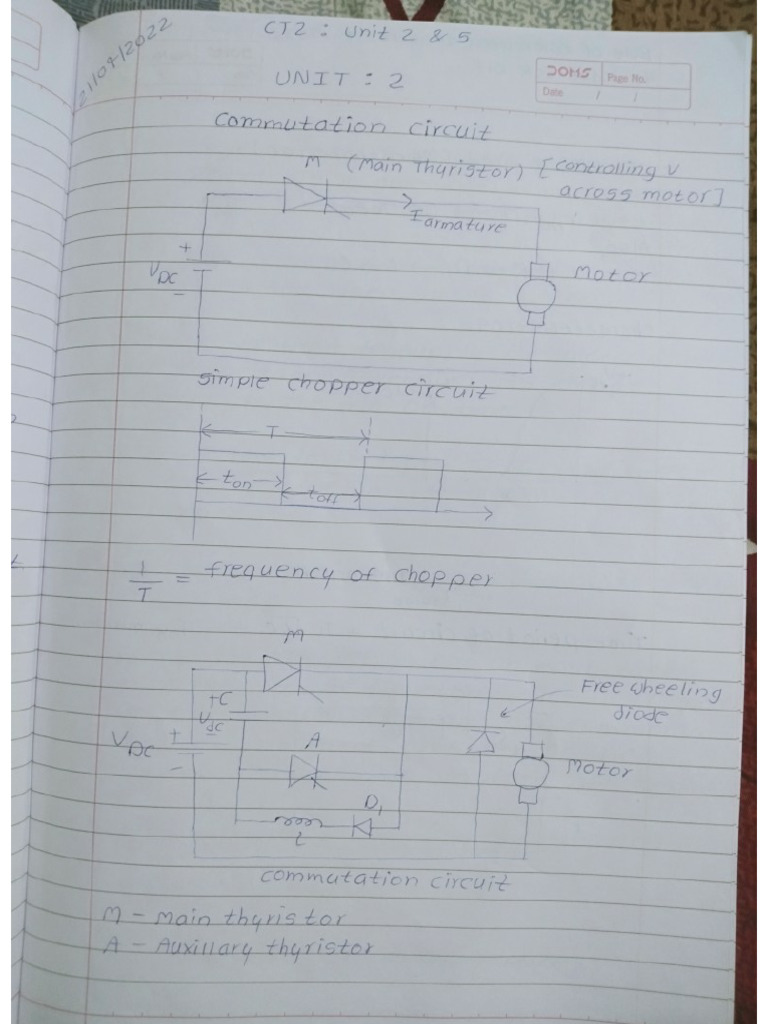 21/07/2022
CT2 : Unit 2 & 5
UNIT : 2
DOMS Page No.
Date / /
commutation circuit
M (Main Thyristor) [controlling V
across motor]
I armature
+
VDC
-
Motor
simple chopper circuit
T
ton
toff
1/T = frequency of chopper
M
Free wheeling
diode
+C
Vdc
-
VDC
+
-
A
Motor
D1
L
commutation circuit
M - Main thyristor
A - Auxillary thyristor